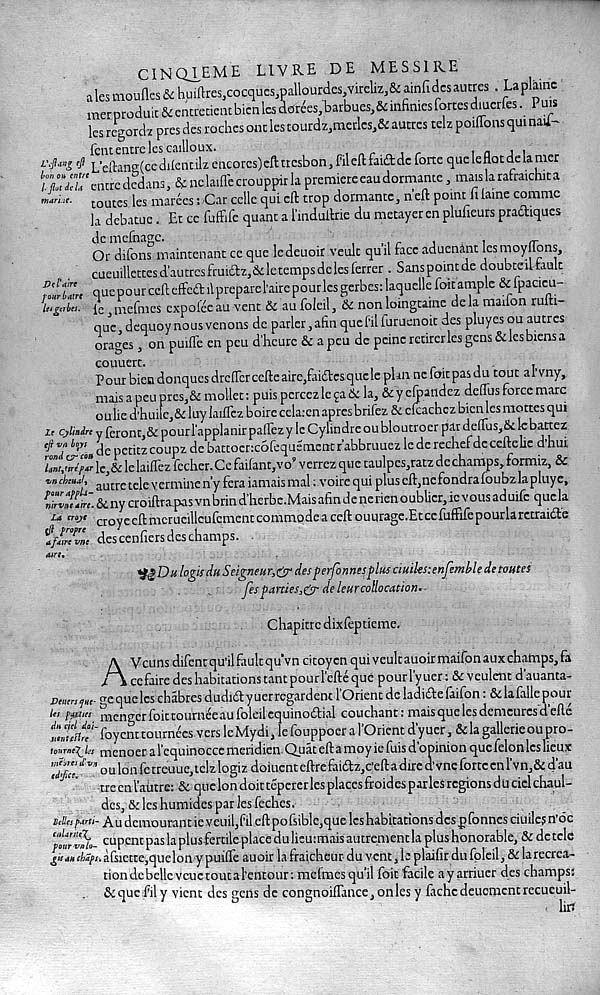 CINQIEME LIVRE DE MESSIRE
a les mousles & huistres, cocques, pallourdes, vireliz, & ainsi des autres. La plaine
mer produit & entretient bien les dorées, barbues, & infinies sortes diuerses. Puis
les regordz pres des roches ont les tourdz, merles, & autres telz poissons qui nais-
sent entre les cailloux.
L'estang est
bon ou entre
l. flot de la
marine.
L'estang (ce disent ilz encores) est tresbon, s'il est faict de sorte que le flot de la mer
entre dedans, & ne laisse crouppir la premiere eau dormante, mais la rafraichit a
toutes les marées: Car celle qui est trop dormante, n'est point si saine comme
la debatue. Et ce suffise quant a l'industrie du metayer en plusieurs practiques
de mesnage.
Or disons maintenant ce que le deuoir veult qu'il face aduenant les moyssons,
cueuillettes d'autres fruictz, & le temps de les serrer. Sans point de doubte il fault
De l'aire
pour batre
les gerbes.
que pour cest effect il prepare l'aire pour les gerbes: laquelle soit ample & spacieu-
se, mesmes exposée au vent & au soleil, & non loingtaine de la maison rusti-
que, dequoy nous venons de parler, afin que s'il suruenoit des pluyes ou autres
orages, on puisse en peu d'heure & a peu de peine retirer les gens & les biens a
couuert.
Pour bien donques dresser ceste aire, faictes que le plan ne soit pas du tout a l'vny,
mais a peu pres, & mollet: puis percez le ça & la, & y espandez dessus force marc
ou lie d'huile, & luy laissez boire cela: en apres brisez & escachez bien les mottes qui
Le Cylindre
est vn boys
rond & cou
lant, tiré par
vn cheual,
pour appla-
nir vne aire.
La croye
est propre
a faire vne
aire.
y seront, & pour l'applanir passez y le Cylindre ou bloutroer par dessus, & le battez
de petitz coupz de battoer: cōsequēment r'abbruuez le de rechef de ceste lie d'hui
le, & le laissez secher. Ce faisant, vo9 verrez que taulpes, ratz de champs, formiz, &
autre tele vermine n'y fera iamais mal: voire qui plus est, ne fondra soubz la pluye,
& ny croistra pas vn brin d'herbe. Mais afin de ne rien oublier, ie vous aduise que la
croye est merueilleusement commode a cest ouurage. Et ce suffise pour la retraicte
des censiers des champs.
Du logis du Seigneur, & des personnes plus ciuiles: ensemble de toutes
ses parties, & de leur collocation.
Chapitre dixseptieme.
AVcuns disent qu'il fault qu'vn citoyen qui veult auoir maison aux champs, fa
ce faire des habitations tant pour l'esté que pour l'yuer: & veulent d'auanta-
Deuers que-
les parties
du ciel doi-
uent estre
tournez les
mēbres d'vn
edifice.
ge que les chābres dudict yuer regardent l'Orient de ladicte saison: & la salle pour
menger soit tournée au soleil equinoctial couchant: mais que les demeures d'esté
soyent tournées vers le Mydi, le souppoer a l'Orient d'yuer, & la gallerie ou pro-
menoer a l'equinocce meridien. Quāt est a moy ie suis d'opinion que selon les lieux
ou lon se treuue, telz logiz doiuent estre faictz, c'est a dire d'vne sorte en l'vn, & d'au
tre en l'autre: & que lon doit tēperer les places froides par les regions du ciel chaul-
des, & les humides par les seches.
Belles parti-
cularitez
pour vn lo-
gis au chāps.
Au demourant ie veuil, s'il est possible, que les habitations des psonnes ciuiles n'oc
cupent pas la plus fertile place du lieu: mais autrement la plus honorable, & de tele
assiette, que lon y puisse auoir la fraicheur du vent, le plaisir du soleil, & la recrea-
tion de belle veue tout a l'entour: mesmes qu'il soit facile a y arriuer des champs:
& que s'il y vient des gens de congnoissance, on les y sache deuement recueuil-
lir: